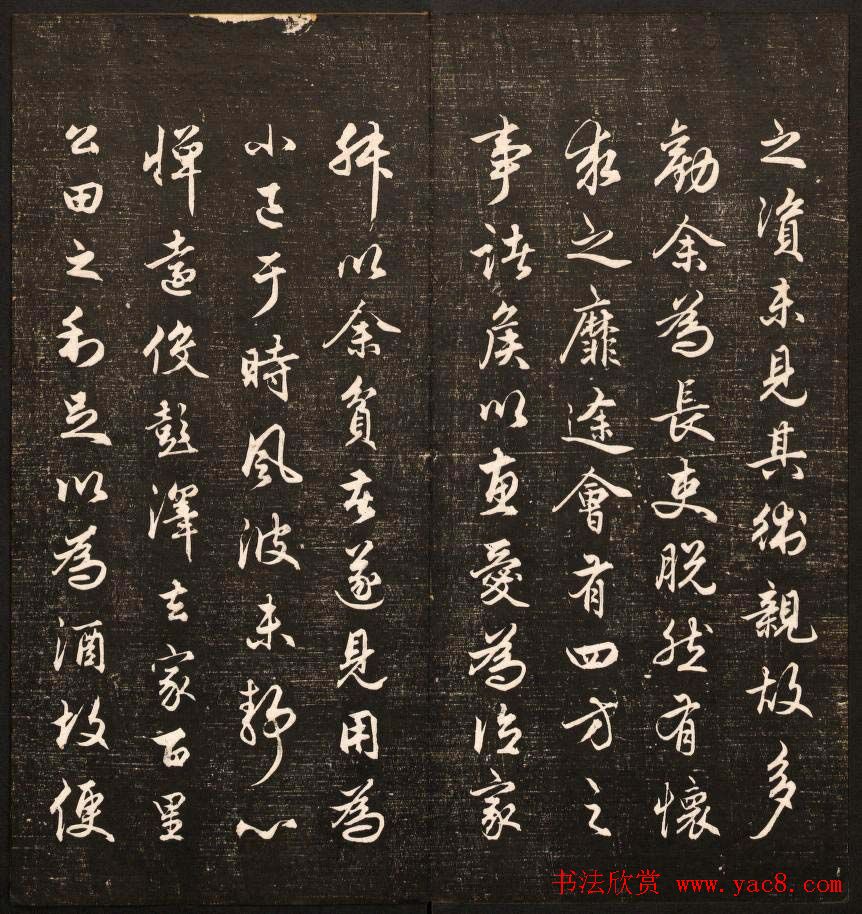 之資未見其術親故多
勸余為長吏脱然有懷
求之靡途會有四方之
事諸侯以惠愛為德家
叔以余貧苦遂見用為
小邑于時風波未靜心
憚遠役彭澤去家百里
公田之利足以為酒故便
书法欣赏 www.yac8.com